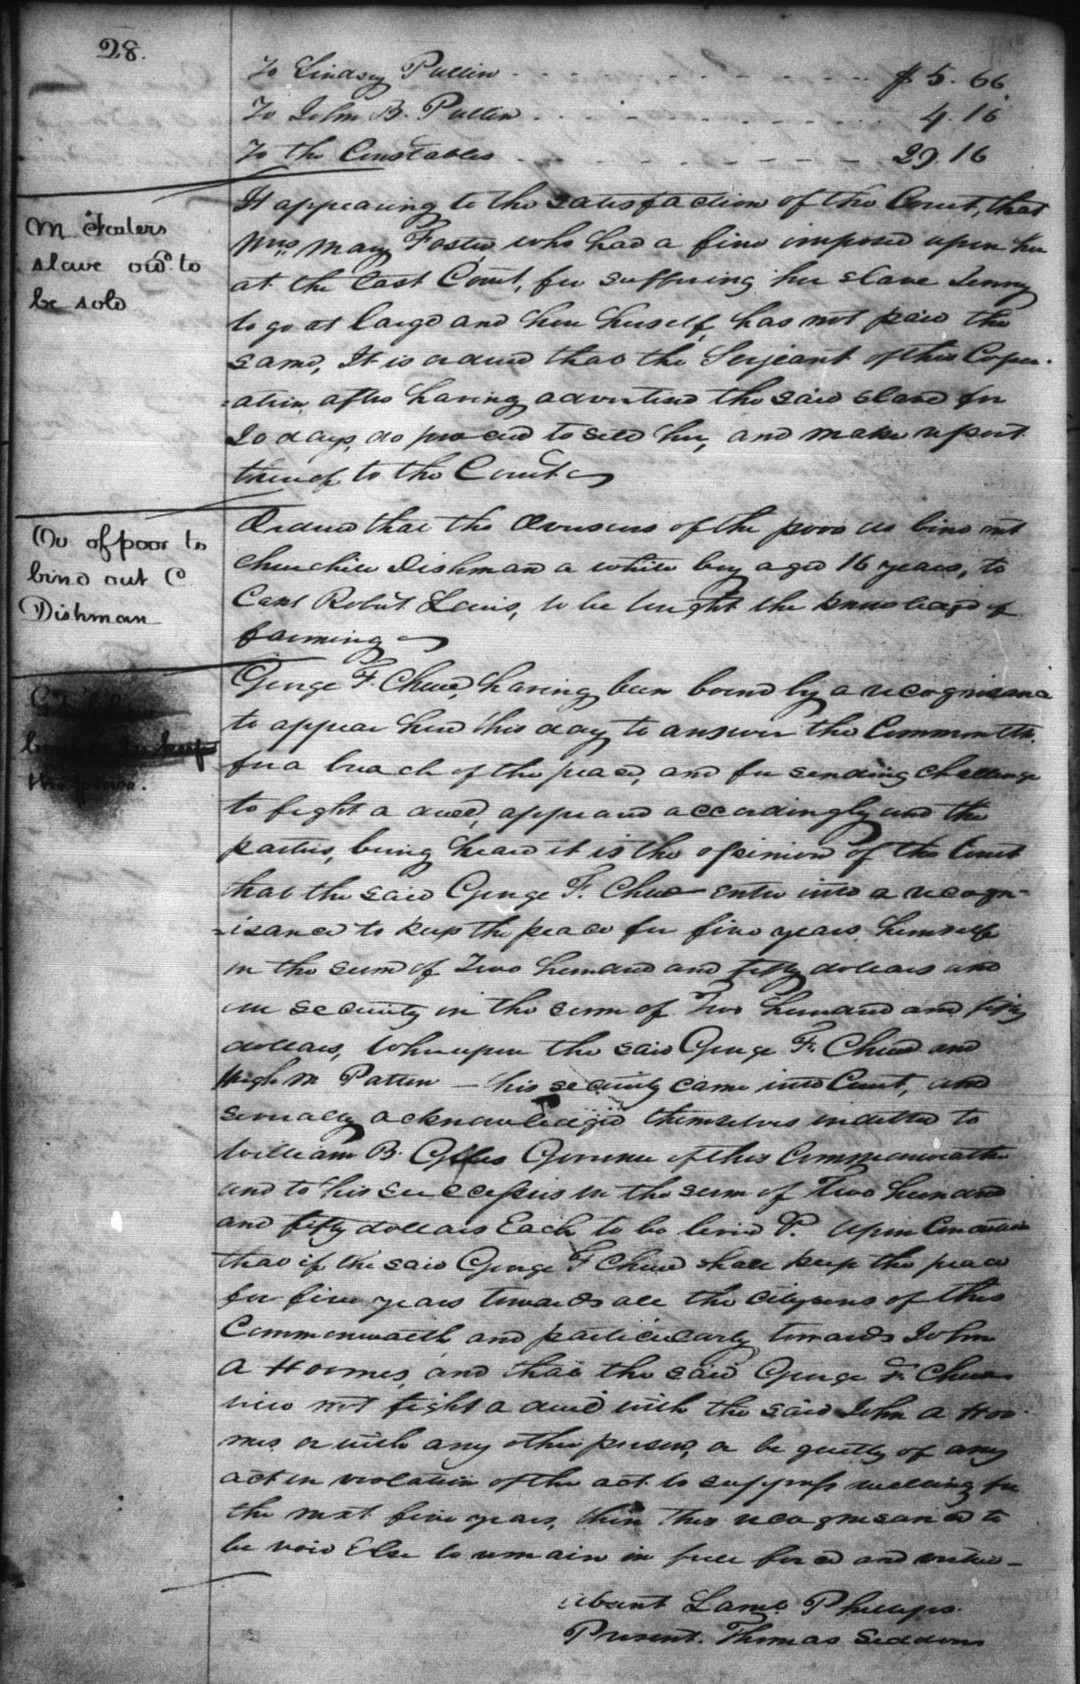 28.
To Lindsey Pullin . . . . . . . . . . $5.66
To John B. Pullin . . . . . . . . . . 4.16
To the Constables . . . . . . . . . . 29.16
M Fosters
slave ord. to
be sold
It appearing to the satisfaction of the Court, that
Mrs. Mary Foster, who had a fine imposed upon her
at the last Court, for suffering her slave Jenny
to go at large and hire herself, has not paid the
same, It is ordered that the Serjeant of this Corpor-
=ation after having advertised the said slave for
10 days, do proceed to sell her, and make report
thereof to the Court
Ov. of poor to
bind out C
Dishman
Ordered that the Overseers of the poor do bind out
Churchill Dishman a white boy aged 16 years, to
Capt Robert Lewis, to be taught the knowledge of
farming
keep
the peace.
George F. Chew, having been bound by a recognisance
to appear here this day to answer the Commonwth.
for a breach of the peace, and for sending challenge
to fight a duel, appeared accordingly and the
parties, being heard it is the opinion of the Court
that the said George F. Chew enter into a recogn-
=isance to keep the peace for five years himself
in the sum of Two hundred and fifty dollars and
one security in the sum of Two hundred and fifty
dollars, Whereupon the said George F. Chew and
Hugh M Patten — his security came into Court, and
severally acknowledged themselves indebted to
William B. Giles Governor of this Commonwealth
and to his successors in the sum of Two hundred
and fifty dollars Each to be levied &. Upon Condition
that if the said George F Chew shall keep the peace
for five years towards all the citizens of this
Commonwealth and particularly towards John
A Hoomes, and that the said George F. Chew
will not fight a duel with the said John A Hoo-
mes or with any other person, or be guilty of any
act in violation of the act to suppress duelling for
the next five years, then this recognisance to
be void Else to remain in full force and virtue —
Absent Lamb. Phillips.
Present. Thomas Seddon